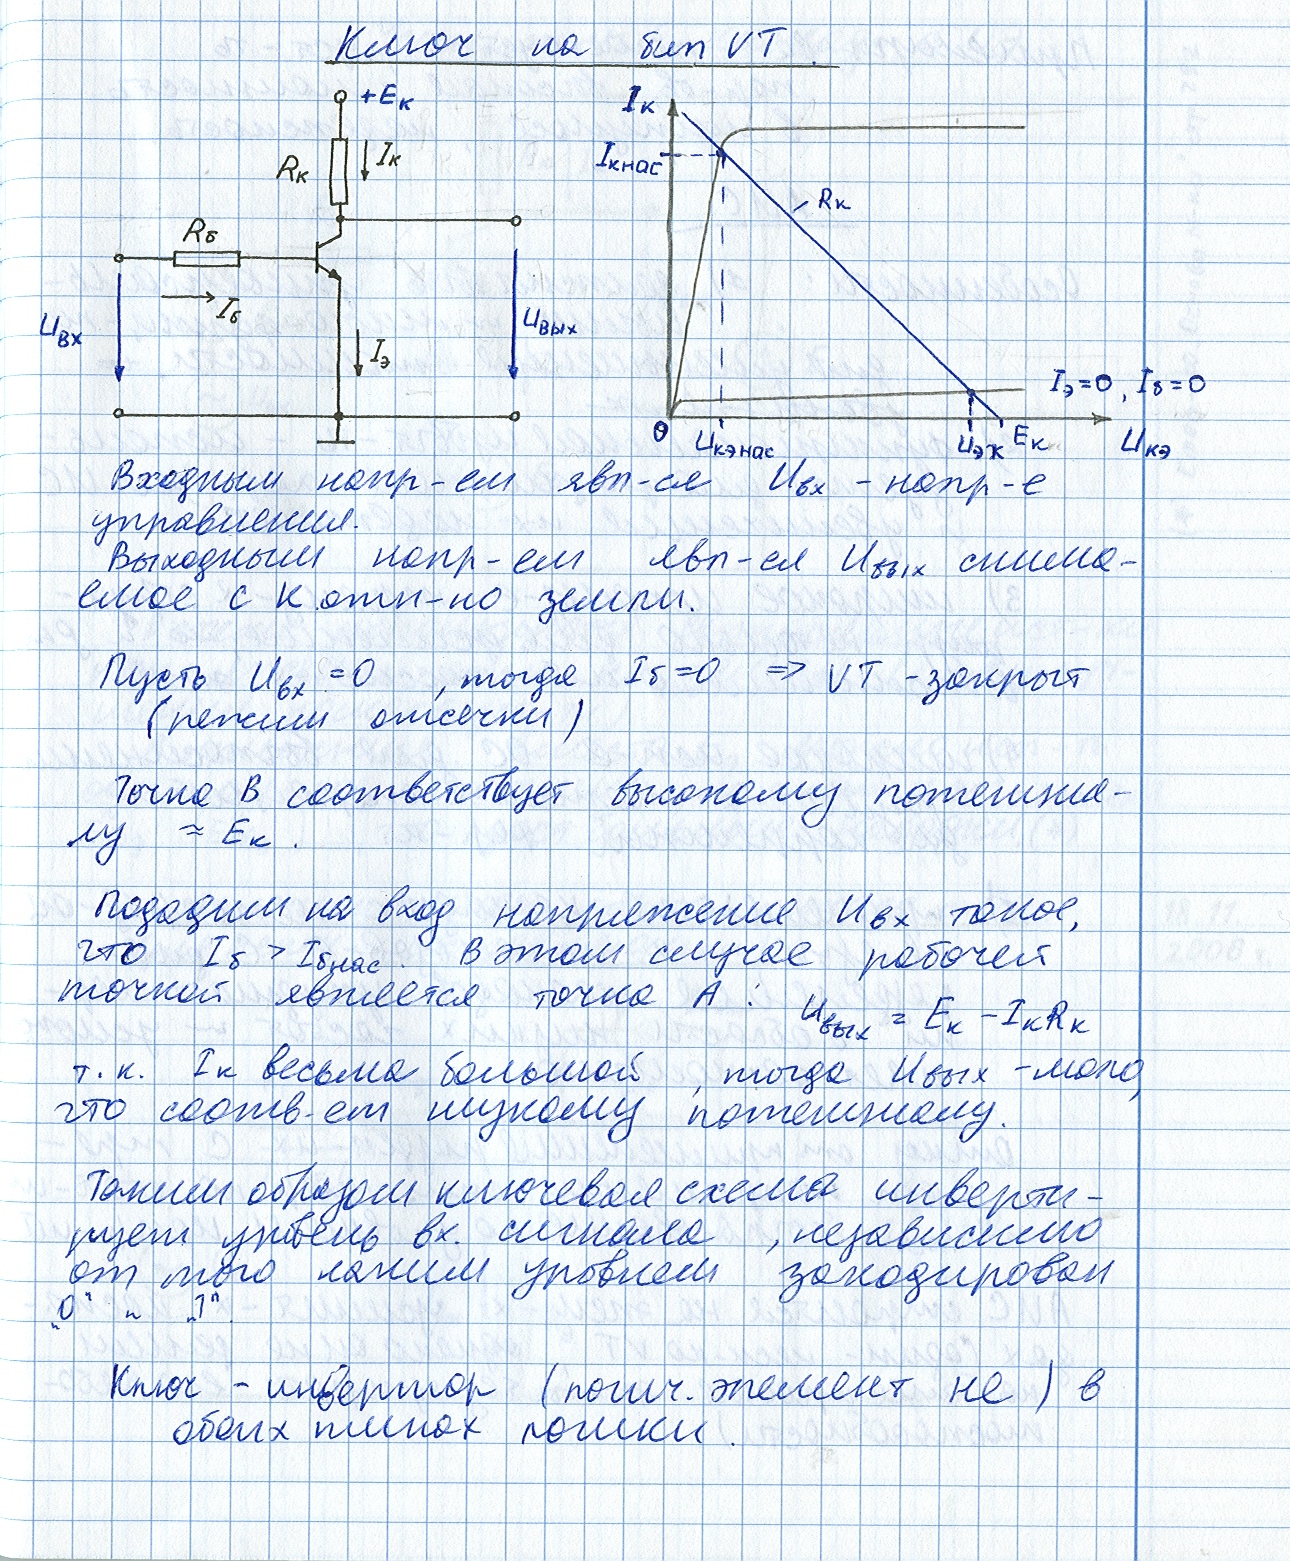 Ключ на бип VT.
+Eк
Iк
Rк
Rб
Iб
Uвх
Uвых
Iэ
Iк
Iкнас
Rк
Iэ=0, Iб=0
0
Uкэнас
Uэк
Eк
Uкэ
Входным напр-ем явл-ся Uвх - напр-е
управления.
Выходным напр-ем явл-ся Uвых снима-
емое с К отн-но земли.
Пусть Uвх = 0, тогда Iб=0 => VT - закрыт
(режим отсечки)
Точка В соответствует высокому потенциа-
лу ≈ Eк.
Подадим на вход напряжение Uвх такое,
что Iб > Iбнас. В этом случае рабочей
точкой является точка А: Uвых = Eк - IкRк
т.к. Iк весьма большой, тогда Uвых - мало,
что соотв-ет низкому потенциалу.
Таким образом ключевая схема инверти-
рует уровень вх. сигнала, независимо
от того каким уровнем закодирован
„0" и „1".
Ключ - инвертор (логич. элемент не) в
обоих типах логики.
18.11.
2008 г.